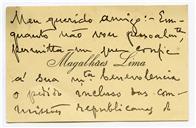 Meu querido amigo: - Em-
quanto não vou pessoalmte
permitta-me que confie
Magalhães Lima
á sua mta benevolencia
o pedido incluso das com-
missões republicanas de